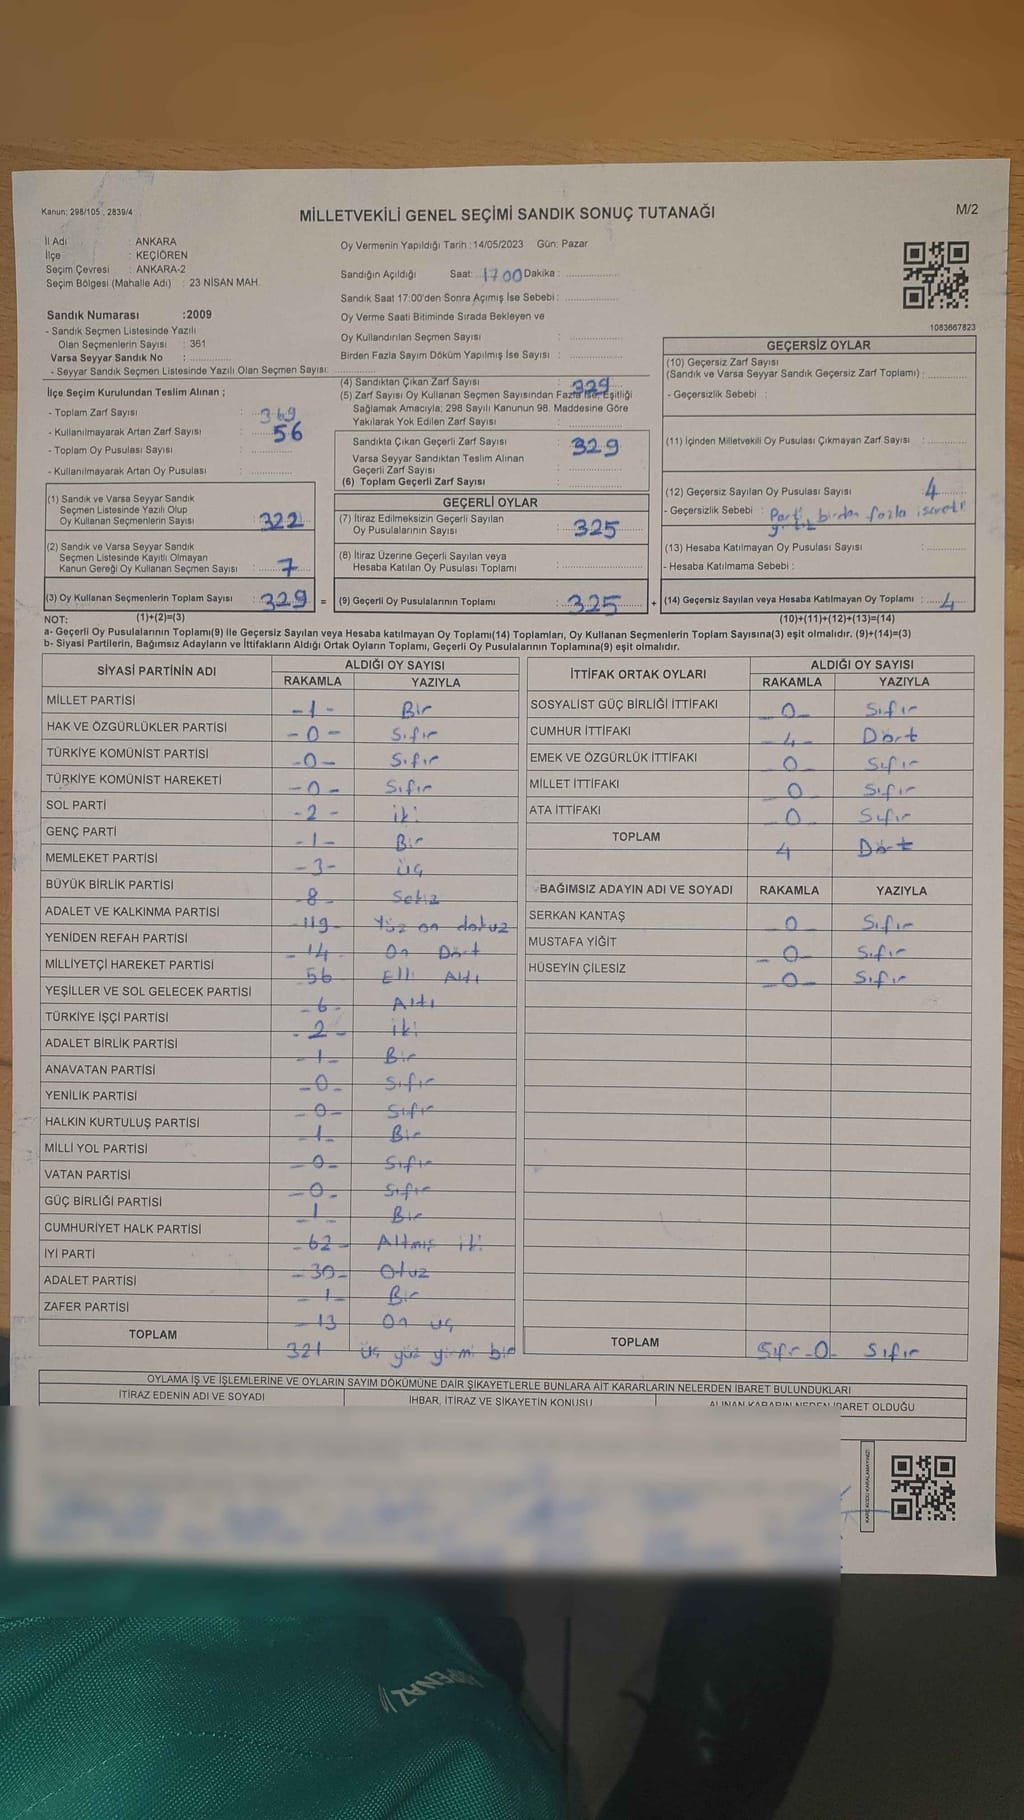 Kanun: 298/105 , 2839/4
MİLLETVEKİLİ GENEL SEÇİMİ SANDIK SONUÇ TUTANAĞI
M/2
İl Adı : ANKARA
İlçe : KEÇİÖREN
Seçim Çevresi : ANKARA-2
Seçim Bölgesi (Mahalle Adı) : 23 NİSAN MAH.
Sandık Numarası :2009
- Sandık Seçmen Listesinde Yazılı
Olan Seçmenlerin Sayısı : 361
Varsa Seyyar Sandık No :
- Seyyar Sandık Seçmen Listesinde Yazılı Olan Seçmen Sayısı:
Oy Vermenin Yapıldığı Tarih :14/05/2023 Gün: Pazar
Sandığın Açıldığı Saat: 17 00 Dakika :
Sandık Saat 17:00'den Sonra Açımış İse Sebebi :
Oy Verme Saati Bitiminde Sırada Bekleyen ve
Oy Kullandırılan Seçmen Sayısı :
Birden Fazla Sayım Döküm Yapılmış İse Sayısı :
1083667823
İlçe Seçim Kurulundan Teslim Alınan ;
- Toplam Zarf Sayısı : 369
- Kullanılmayarak Artan Zarf Sayısı : 56
- Toplam Oy Pusulası Sayısı :
- Kullanılmayarak Artan Oy Pusulası :
(1) Sandık ve Varsa Seyyar Sandık
Seçmen Listesinde Yazılı Olup
Oy Kullanan Seçmenlerin Sayısı : 322
(2) Sandık ve Varsa Seyyar Sandık
Seçmen Listesinde Kayıtlı Olmayan
Kanun Gereği Oy Kullanan Seçmen Sayısı : 7
(3) Oy Kullanan Seçmenlerin Toplam Sayısı : 329 =
(4) Sandıktan Çıkan Zarf Sayısı : 329
(5) Zarf Sayısı Oy Kullanan Seçmen Sayısından Fazla ise, Eşitliği
Sağlamak Amacıyla; 298 Sayılı Kanunun 98. Maddesine Göre
Yakılarak Yok Edilen Zarf Sayısı :
Sandıkta Çıkan Geçerli Zarf Sayısı : 329
Varsa Seyyar Sandıktan Teslim Alınan
Geçerli Zarf Sayısı :
(6) Toplam Geçerli Zarf Sayısı :
GEÇERLİ OYLAR
(7) İtiraz Edilmeksizin Geçerli Sayılan
Oy Pusulalarının Sayısı : 325
(8) İtiraz Üzerine Geçerli Sayılan veya
Hesaba Katılan Oy Pusulası Toplamı :
(9) Geçerli Oy Pusulalarının Toplamı : 325 +
GEÇERSİZ OYLAR
(10) Geçersiz Zarf Sayısı
(Sandık ve Varsa Seyyar Sandık Geçersiz Zarf Toplamı) :
- Geçersizlik Sebebi :
(11) İçinden Milletvekili Oy Pusulası Çıkmayan Zarf Sayısı :
(12) Geçersiz Sayılan Oy Pusulası Sayısı : 4
- Geçersizlik Sebebi : Parti birden fazla
(13) Hesaba Katılmayan Oy Pusulası Sayısı :
- Hesaba Katılmama Sebebi :
(14) Geçersiz Sayılan veya Hesaba Katılmayan Oy Toplamı : 4
NOT: (1)+(2)=(3) (10)+(11)+(12)+(13)=(14)
a- Geçerli Oy Pusulalarının Toplamı(9) İle Geçersiz Sayılan veya Hesaba katılmayan Oy Toplamı(14) Toplamları, Oy Kullanan Seçmenlerin Toplam Sayısına(3) eşit olmalıdır. (9)+(14)=(3)
b- Siyasi Partilerin, Bağımsız Adayların ve İttifakların Aldığı Ortak Oyların Toplamı, Geçerli Oy Pusulalarının Toplamına(9) eşit olmalıdır.
SİYASİ PARTİNİN ADI ALDIĞI OY SAYISI
RAKAMLA YAZIYLA
MİLLET PARTİSİ -1- Bir
HAK VE ÖZGÜRLÜKLER PARTİSİ -0- Sıfır
TÜRKİYE KOMÜNİST PARTİSİ -0- Sıfır
TÜRKİYE KOMÜNİST HAREKETİ -0- Sıfır
SOL PARTİ -2- iki
GENÇ PARTİ -1- Bir
MEMLEKET PARTİSİ -3- üç
BÜYÜK BİRLİK PARTİSİ -8- Sekiz
ADALET VE KALKINMA PARTİSİ -119- Yüz on dokuz
YENİDEN REFAH PARTİSİ -14- On Dört
MİLLİYETÇİ HAREKET PARTİSİ 56 Elli Altı
YEŞİLLER VE SOL GELECEK PARTİSİ -6- Altı
TÜRKİYE İŞÇİ PARTİSİ -2- iki
ADALET BİRLİK PARTİSİ -1- Bir
ANAVATAN PARTİSİ -0- Sıfır
YENİLİK PARTİSİ -0- Sıfır
HALKIN KURTULUŞ PARTİSİ -1- Bir
MİLLİ YOL PARTİSİ -0- Sıfır
VATAN PARTİSİ -0- Sıfır
GÜÇ BİRLİĞİ PARTİSİ -1- Bir
CUMHURİYET HALK PARTİSİ -62- Altmış iki
İYİ PARTİ -30- Otuz
ADALET PARTİSİ -1- Bir
ZAFER PARTİSİ -13 On üç
TOPLAM 321 üç yüz yirmi bir
İTTİFAK ORTAK OYLARI ALDIĞI OY SAYISI
RAKAMLA YAZIYLA
SOSYALİST GÜÇ BİRLİĞİ İTTİFAKI -0- Sıfır
CUMHUR İTTİFAKI -4- Dört
EMEK VE ÖZGÜRLÜK İTTİFAKI -0- Sıfır
MİLLET İTTİFAKI -0- Sıfır
ATA İTTİFAKI -0- Sıfır
TOPLAM 4 Dört
BAĞIMSIZ ADAYIN ADI VE SOYADI RAKAMLA YAZIYLA
SERKAN KANTAŞ -0- Sıfır
MUSTAFA YİĞİT -0- Sıfır
HÜSEYİN ÇİLESİZ -0- Sıfır
TOPLAM Sıfr -0- Sıfır
OYLAMA İŞ VE İŞLEMLERİNE VE OYLARIN SAYIM DÖKÜMÜNE DAİR ŞİKAYETLERLE BUNLARA AİT KARARLARIN NELERDEN İBARET BULUNDUKLARI
İTİRAZ EDENİN ADI VE SOYADI İHBAR, İTİRAZ VE ŞİKAYETİN KONUSU ALINAN KARARIN NEDEN İBARET OLDUĞU